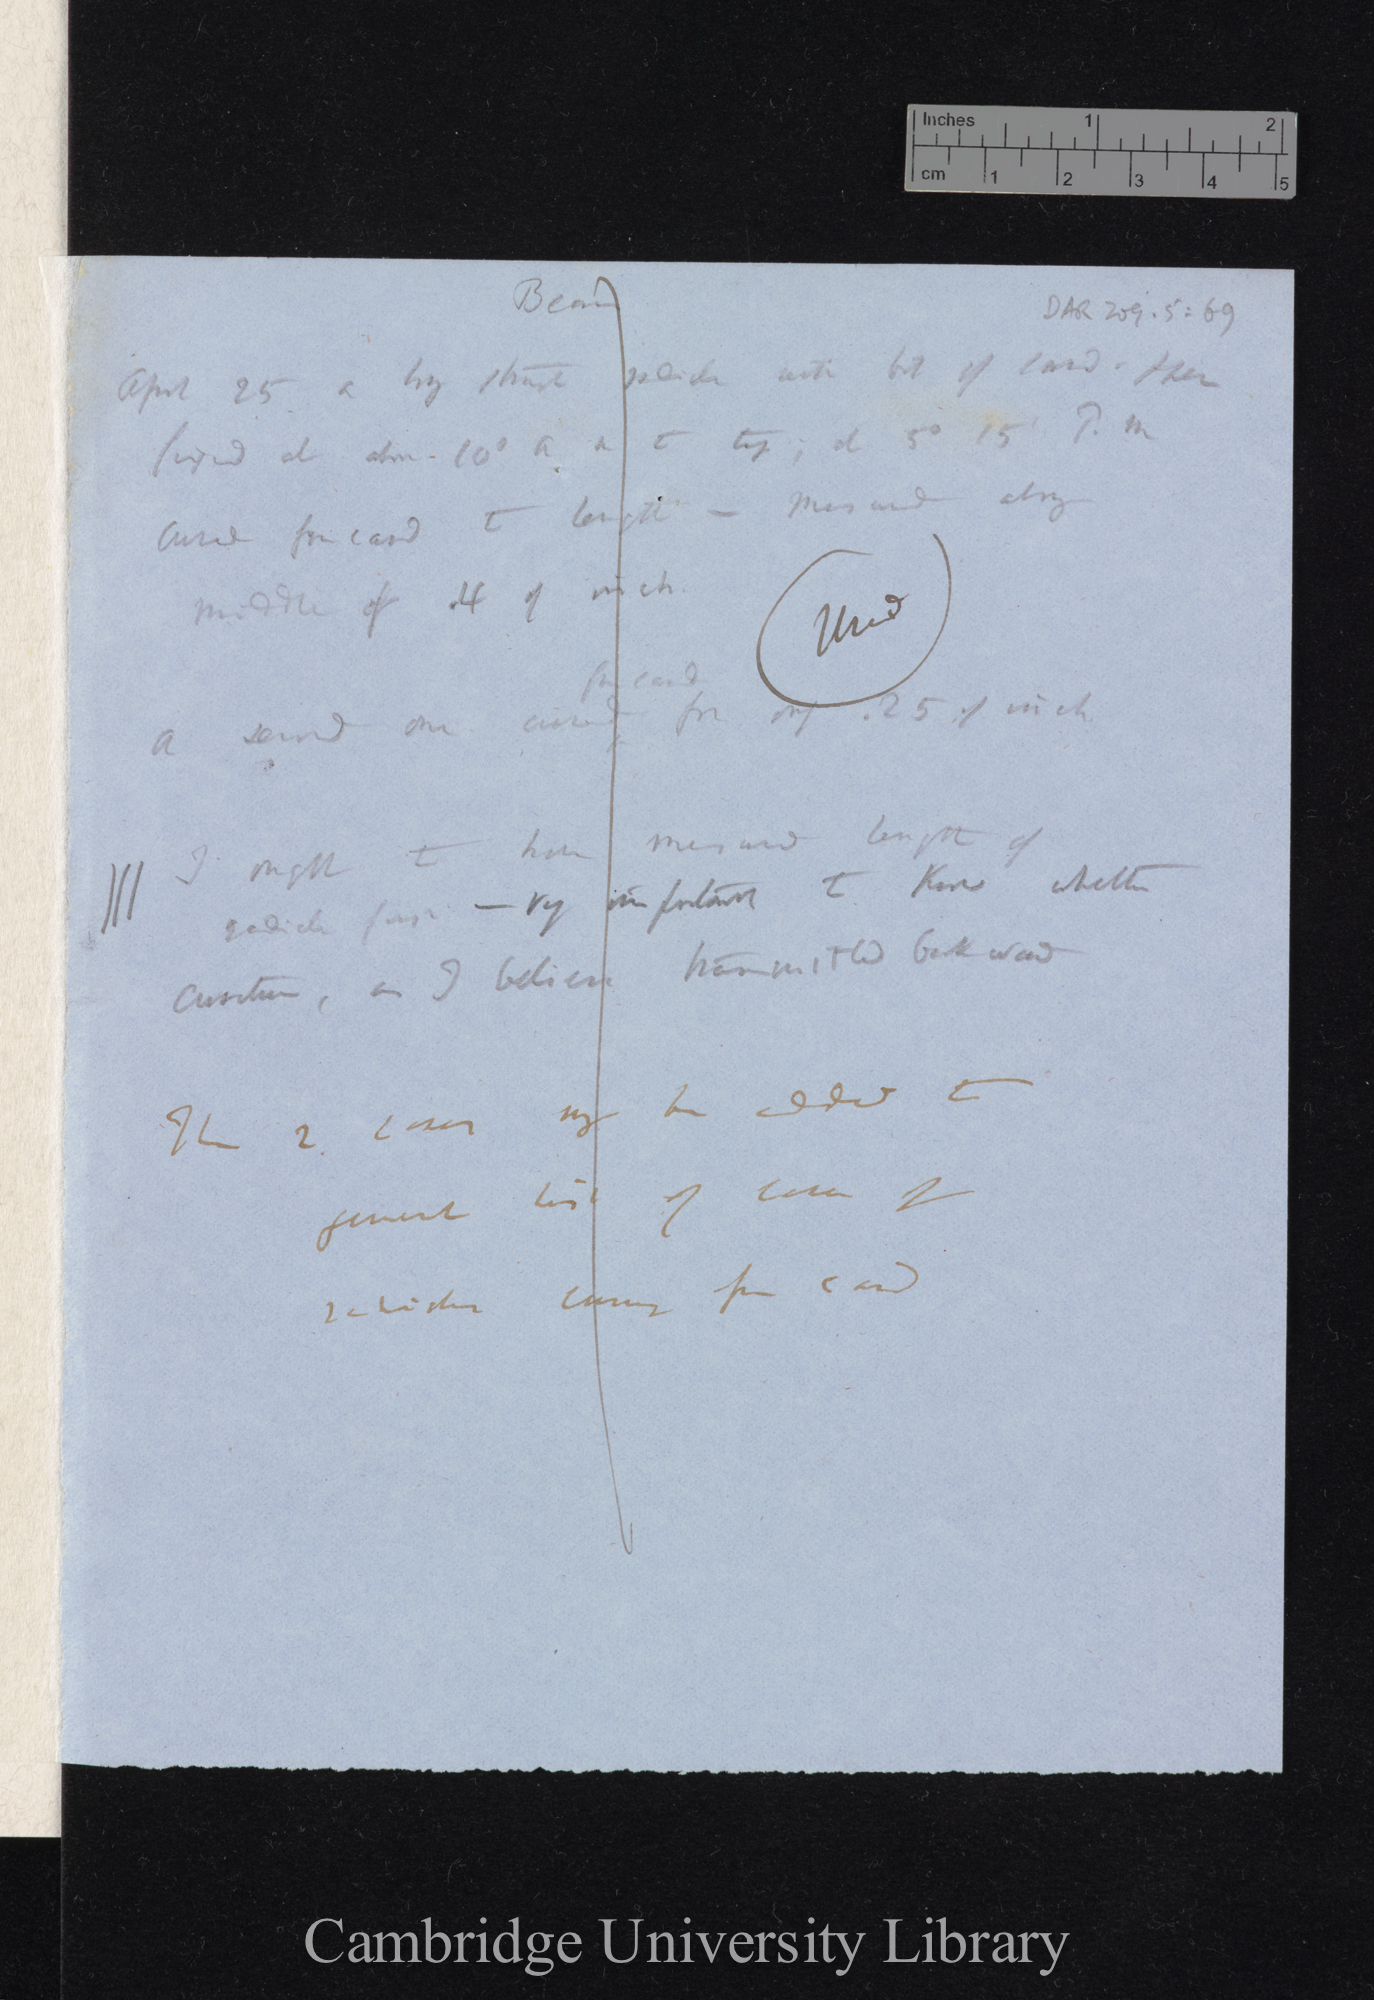 Inches 1 2
cm 1 2 3 4 5
Bean
DAR 209.5: 69
April 25 a big radicle with bit of card - then
fixed at abt. 10° A. m to tip; at 5° 15' P. m
curved from card to length — measured along
middle of .4 of inch.
Used
from card
A second one curved for only .25 of inch
I ought to have measured length of
radicle first — vy important to know whether
curvature, as I believe transmitted backward
The 2 cases may be added to
general list of cases of
radicles curving from card
Cambridge University Library